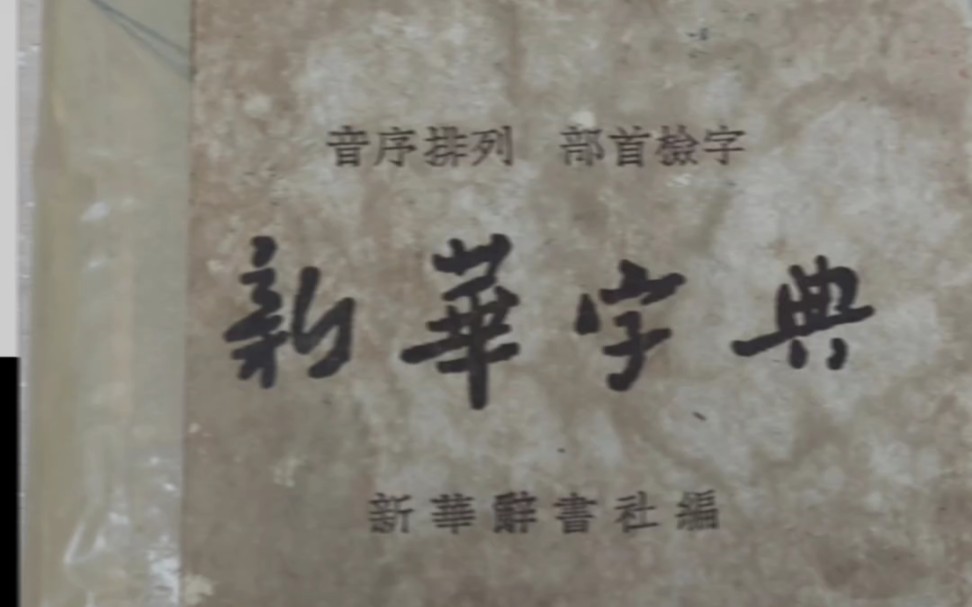 音序排列 部首檢字
新華字典
新華辭書社編